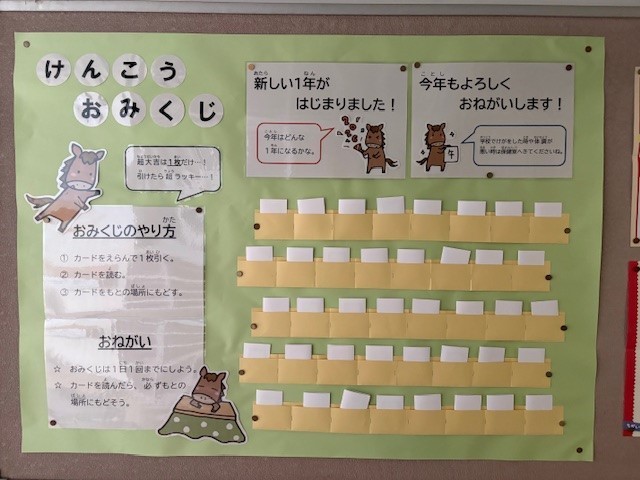 けんこう
おみくじ
新しい1年が
はじまりました！
今年はどんな
1年になるかな。
今年もよろしく
おねがいします！
学校でけがをした時や体調が
悪い時は保健室へきてくださいね。
午
超大吉は1枚だけ…！
引けたら超ラッキー…！
おみくじのやり方
① カードをえらんで1枚引く。
② カードを読む。
③ カードをもとの場所にもどす。
おねがい
☆ おみくじは1日1回までにしよう。
☆ カードを読んだら、必ずもとの
場所にもどそう。